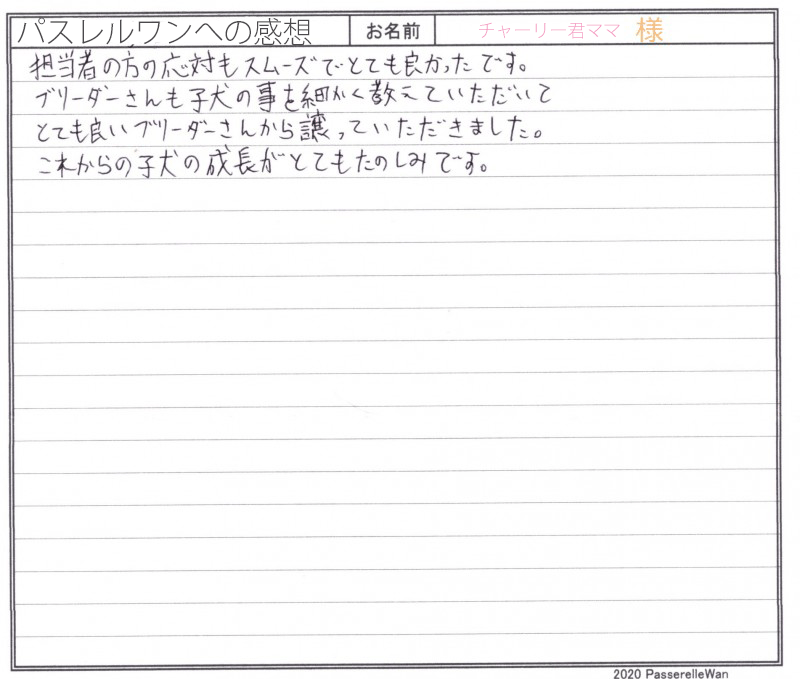 パスレルワンへの感想 お名前 チャーリー君ママ 様
担当者の方の応対もスムーズでとても良かったです。
ブリーダーさんも子犬の事を細かく教えていただいて
とても良いブリーダーさんから譲っていただきました。
これからの子犬の成長がとてもたのしみです。
2020 PasserelleWan